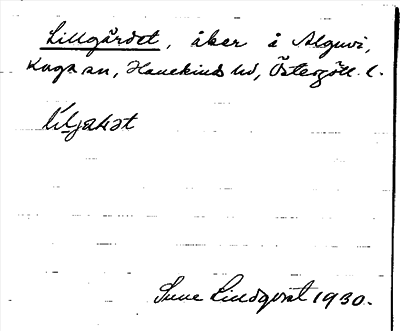 Lillgärdet, åker å Alguvi,
Kaga sn, Hanekinds hd, Östergötl. l.
Liljahät
Sune Lindqvist 1930.